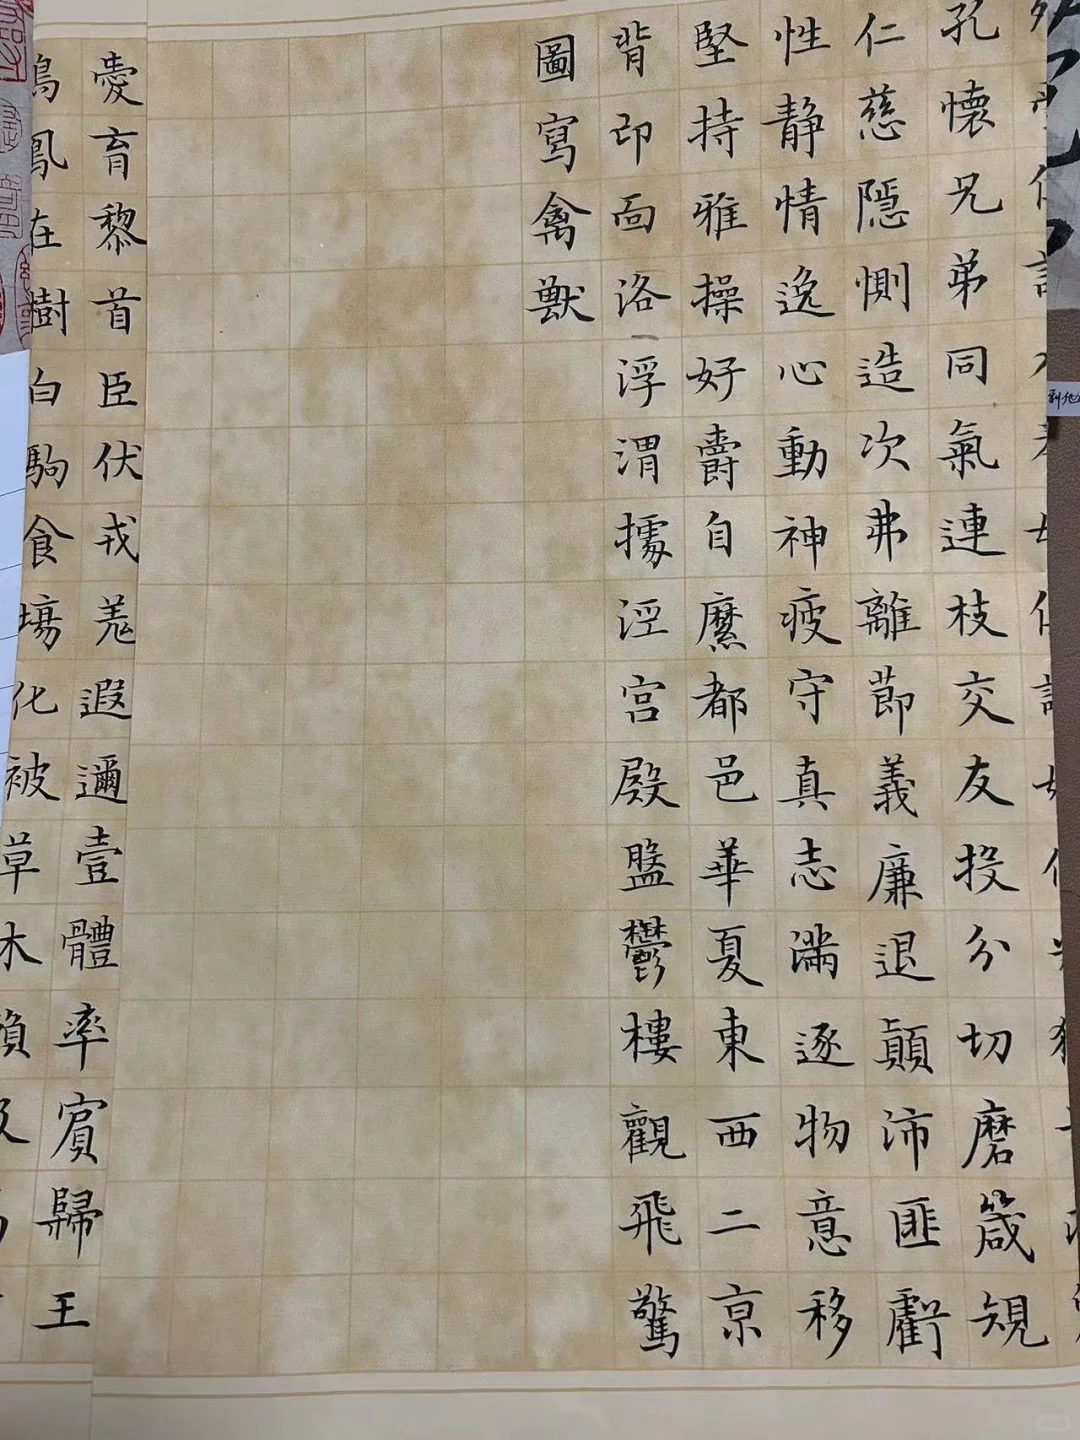 孔懷兄弟同氣連枝交友投分切磨箴規
仁慈隱惻造次弗離節義廉退顛沛匪虧
性静情逸心動神疲守真志滿逐物意移
堅持雅操好爵自縻都邑華夏東西二京
背邙面洛浮渭據涇宮殿盤鬱樓觀飛驚
圖寫禽獸
愛育黎首臣伏戎羌遐邇壹體率賓歸王
鳴鳳在樹白駒食場化被草木賴及